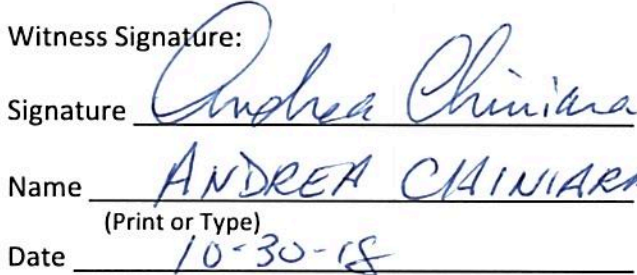 Witness Signature:
Signature Andrea Chiniara
Name ANDREA CHINIARA
(Print or Type)
Date 10-30-18